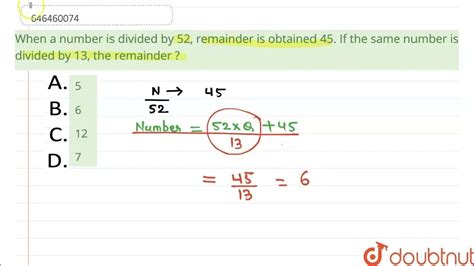 646460074
When a number is divided by 52, remainder is obtained 45. If the same number is
divided by 13, the remainder ?
A. 5
B. 6
C. 12
D. 7
N → 45
52
Number = 52×Q + 45
13
= 45 = 6
13
doubtnut